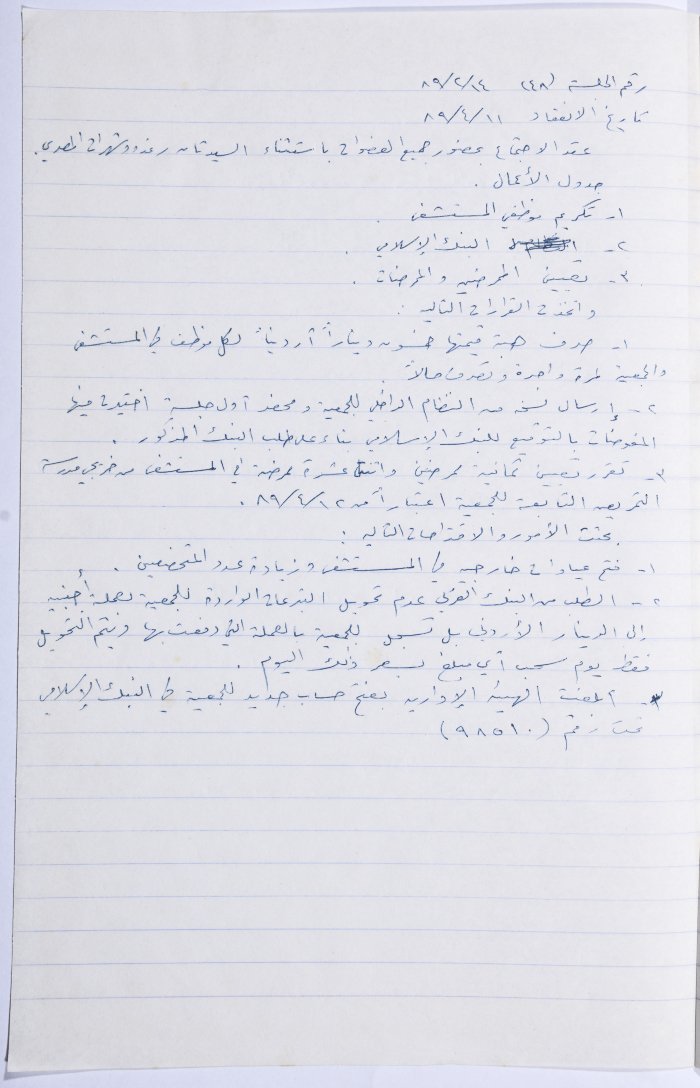 رقم الجلسة (٢٤٨) ٨٩/٢/١٤
تاريخ الانعقاد ٨٩/٤/١١
عقد الاجتماع بحضور جميع العضوات باستثناء السيدتان رغدة وشهرات المصري.
جدول الأعمال .
١- تكريم موظفي المستشفى .
٢- البنك الإسلامي .
٣- تعيين الممرضين والممرضات .
واتخذت القرارات التالية :
١- صرف هبة قيمتها خمسون ديناراً أردنياً لكل موظف في المستشفى
والجمعية لمرة واحدة وتصرف حالاً .
٢- إرسال نسخة من النظام الداخلي للجمعية ومحضر أول جلسة اختيرت فيها
المفوضات بالتوقيع للبنك الإسلامي بناء على طلب البنك المذكور .
٣- تقرر تعيين ثمانية ممرضين واثنتا عشرة ممرضة في المستشفى من خريجي مدرسة
التمريض التابعة للجمعية اعتباراً من ٨٩/٤/١٢ .
بحثت الأمور والاقتراحات التالية :
١- فتح عيادات خارجية في المستشفى وزيادة عدد المتخصصين .
٢- الطلب من البنك العربي عدم تحويل التبرعات الواردة للجمعية بعملة أجنبية
إلى الدينار الأردني بل تسجل للجمعية بالعملة التي دفعت بها ويتم التحويل
فقط يوم سحب أي مبلغ بسعر ذلك اليوم .
٣- أبلغت الهيئة الإدارية بفتح حساب جديد للجمعية في البنك الإسلامي
تحت رقم (٩٨٥١٠)